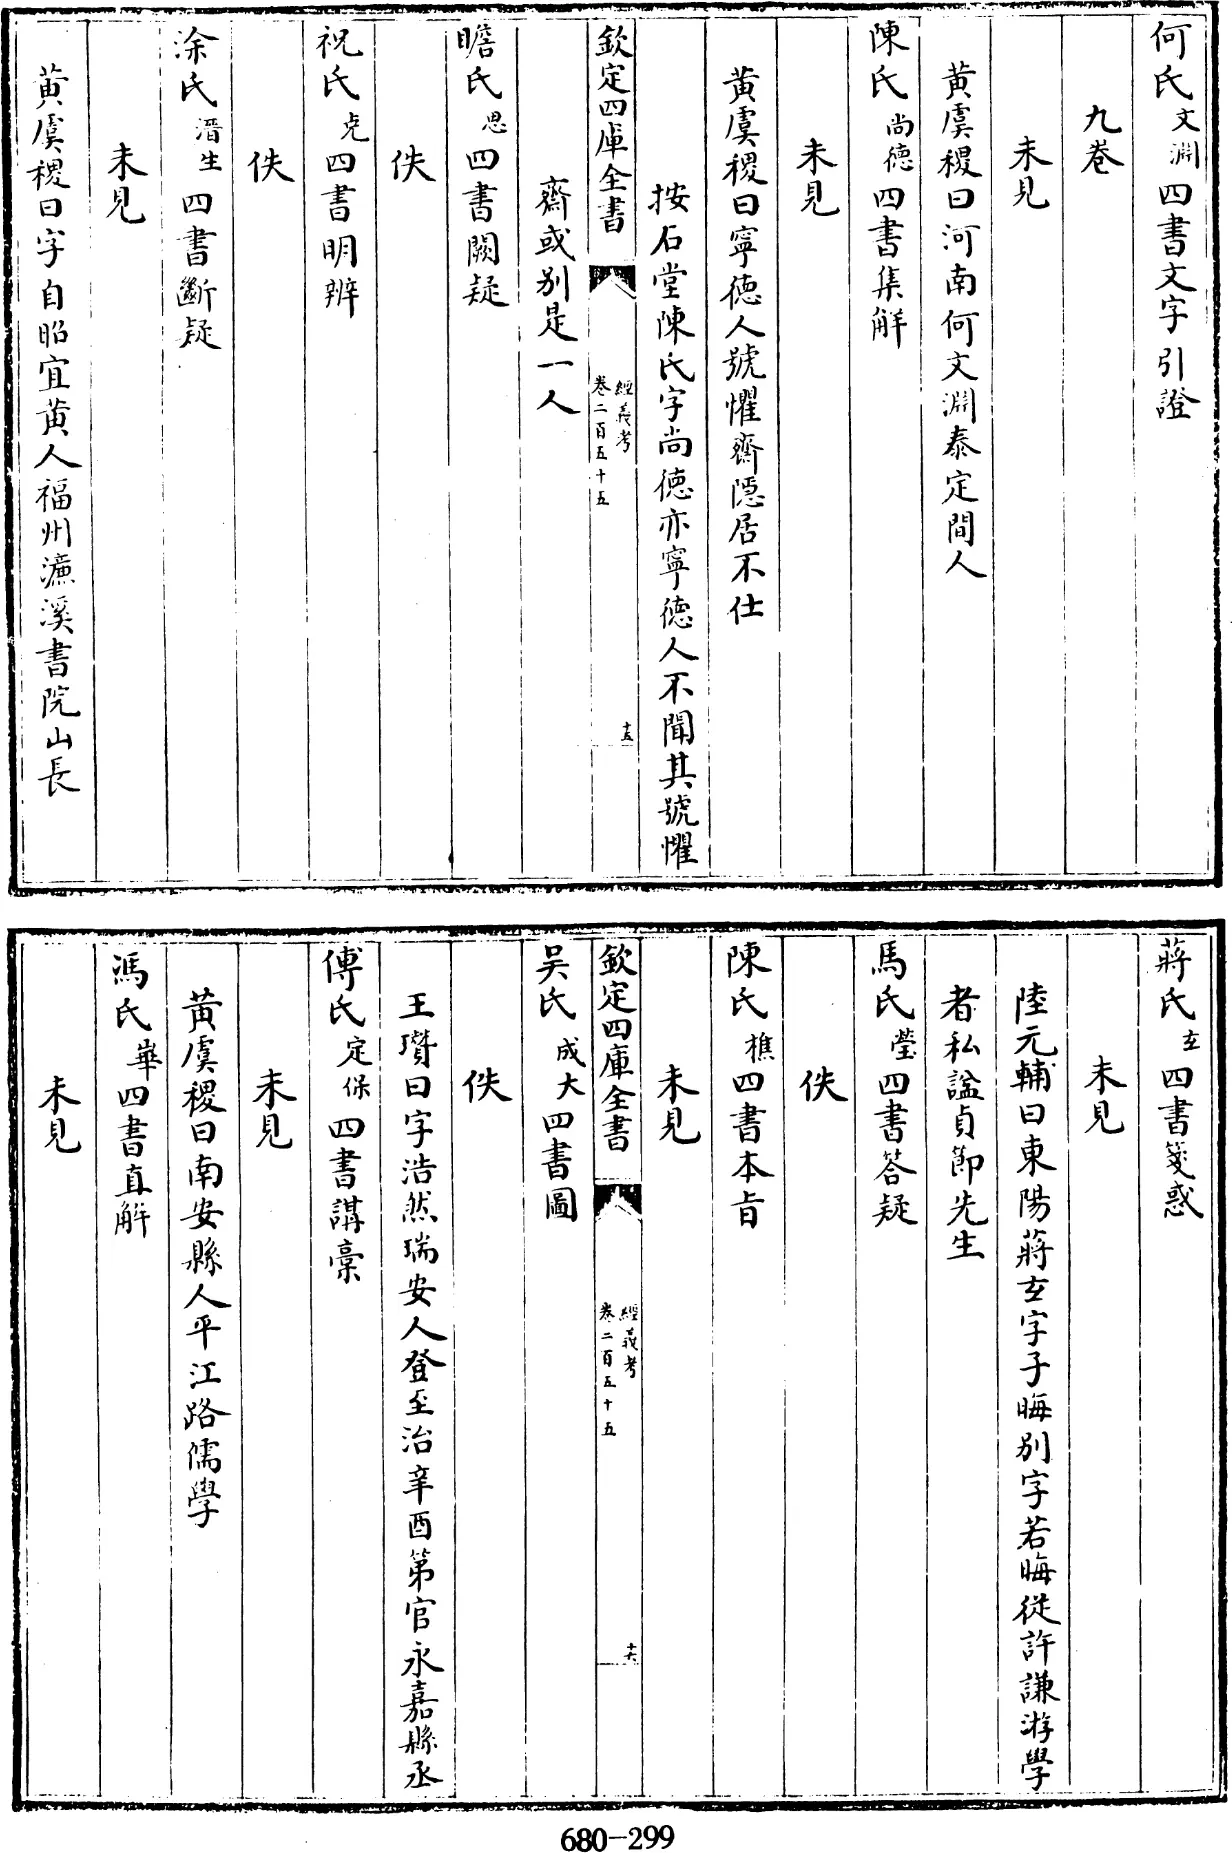 何氏文淵四書文字引證
九卷
未見
黃虞稷曰河南何文淵泰定間人
陳氏尚德四書集解
未見
黃虞稷曰寧德人號懼齋隱居不仕
按石堂陳氏字尚德亦寧德人不聞其號懼
欽定四庫全書
經義考
卷二百五十五
十五
齋或別是一人
瞻氏思四書闕疑
佚
祝氏堯四書明辨
佚
涂氏溍生四書斷疑
未見
黃虞稷曰字自昭宜黃人福州濂溪書院山長
蔣氏玄四書箋惑
未見
陸元輔曰東陽蔣玄字子晦別字若晦從許謙游學
者私諡貞節先生
馬氏瑩四書答疑
佚
陳氏樵四書本旨
未見
欽定四庫全書
經義考
卷二百五十五
十六
吳氏成大四書圖
佚
王瓚曰字浩然瑞安人登至治辛酉第官永嘉縣丞
傅氏定保四書講稾
未見
黃虞稷曰南安縣人平江路儒學
馮氏崋四書直解
未見
680-299